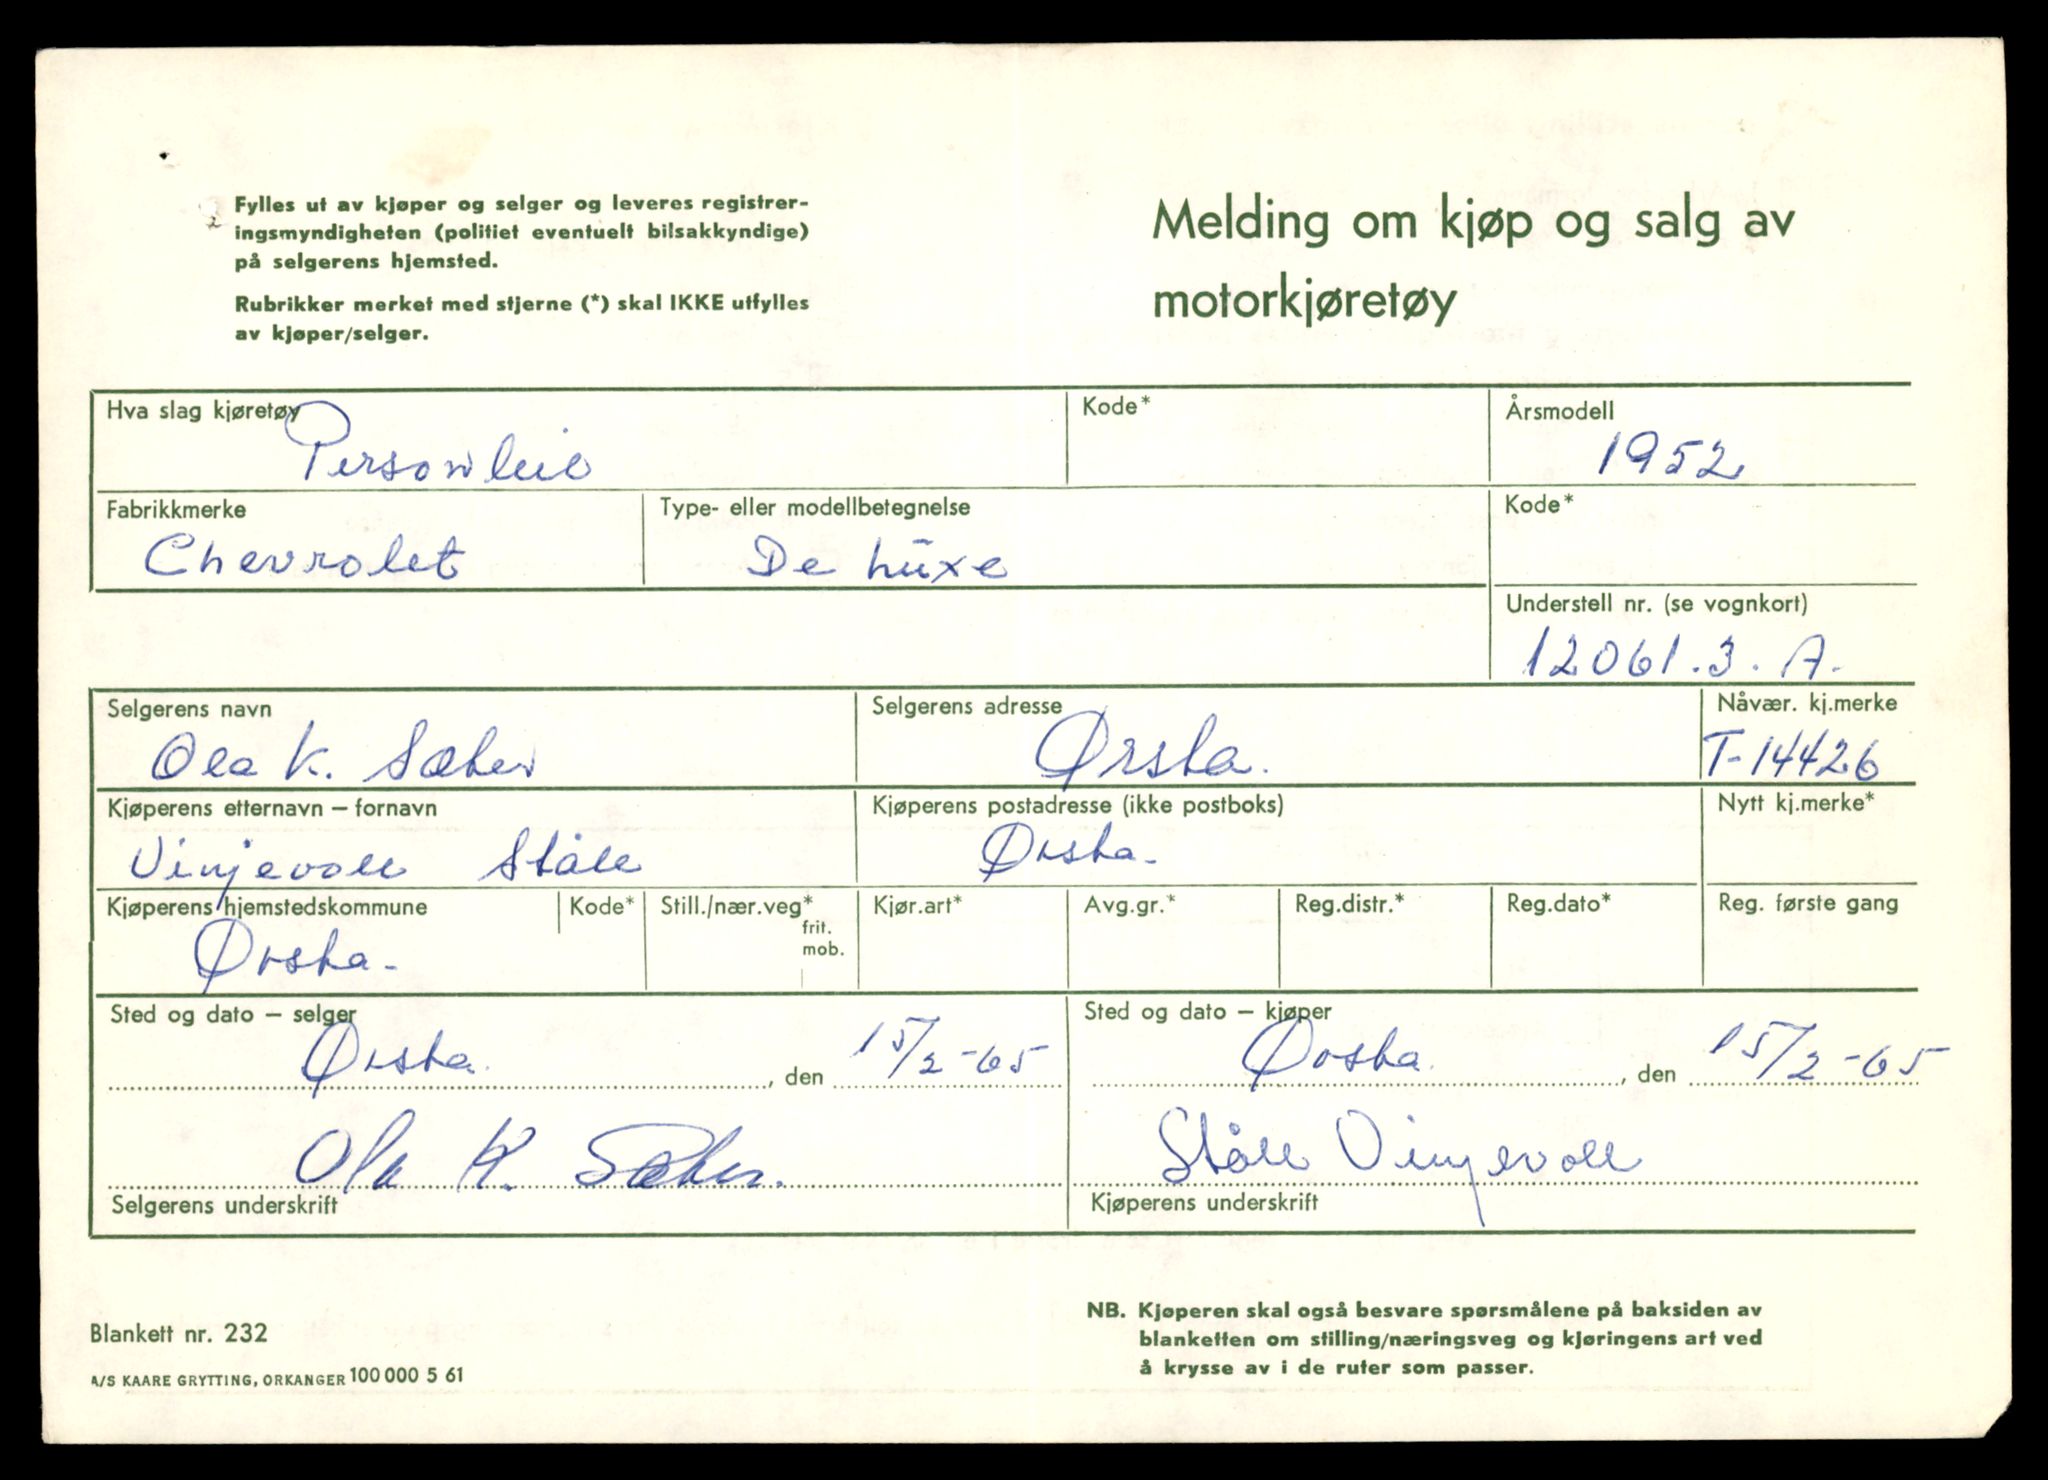 Fylles ut av kjøper og selger og leveres registrer-
ingsmyndigheten (politiet eventuelt bilsakkyndige)
på selgerens hjemsted.
Rubrikker merket med stjerne (*) skal IKKE utfylles
av kjøper/selger.
Melding om kjøp og salg av
motorkjøretøy
Hva slag kjøretøy
Personbil
Kode*
Årsmodell
1952
Fabrikkmerke
Chevrolet
Type- eller modellbetegnelse
De Luxe
Kode*
Understell nr. (se vognkort)
12061.3.A.
Selgerens navn
Ola K. Sæter
Selgerens adresse
Ørsta.
Nåvær. kj.merke
T-14426
Kjøperens etternavn – fornavn
Vinjevoll Ståle
Kjøperens postadresse (ikke postboks)
Ørsta-
Nytt kj.merke*
Kjøperens hjemstedskommune
Ørsta-
Kode*
Still./nær.veg*
frit.
mob.
Kjør.art*
Avg.gr.*
Reg.distr.*
Reg.dato*
Reg. første gang
Sted og dato – selger
Ørsta. , den 15/2-65
Sted og dato – kjøper
Ørsta. , den 15/2-65
Ola K. Sæter.
Selgerens underskrift
Ståle Vinjevoll
Kjøperens underskrift
Blankett nr. 232
A/S KAARE GRYTTING, ORKANGER 100 000 5 61
NB. Kjøperen skal også besvare spørsmålene på baksiden av
blanketten om stilling/næringsveg og kjøringens art ved
å krysse av i de ruter som passer.